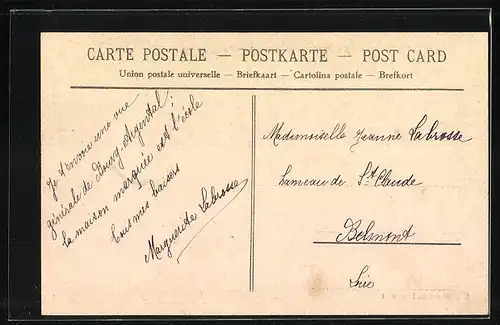 CARTE POSTALE — POSTKARTE — POST CARD
Union postale universelle — Briefkaart — Cartolina postale — Brefkort
Je t'envoie une vue
générale de Bourg-Argental;
la maison marquée est l'école
Tous mes baisers
Marguerite Labrosse
Mademoiselle Jeanne Labrosse
Hameau de St Claude
Belmont
Loire